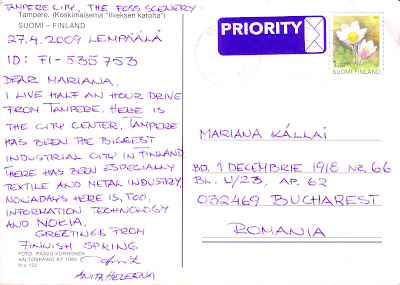 TAMPERE CITY, THE FOSS SCENERY
Tampere. (Koskimaisema "Ilveksen katolta")
SUOMI – FINLAND
27.4.2009 LEMPÄÄLÄ
ID: FI-535753
DEAR MARIANA,
I LIVE HALF AN HOUR DRIVE
FROM TAMPERE. HERE IS
THE CITY CENTER. TAMPERE
HAS BEEN THE BIGGEST
INDUSTRIAL CITY IN FINLAND.
HERE HAS BEEN ESPECIALLY
TEXTILE AND METAL INDUSTRY,
NOWADAYS HERE IS, TOO,
INFORMATION TECHNOLOGY
AND NOKIA.
GREETINGS FROM
FINNISH SPRING
FOTO: PAAVO KORHONEN
AALTOSPAINO KY 1993
N:o 102
PRIORITY
SUOMI FINLAND
MARIANA KÁLLAI
BD. 1 DECEMBRIE 1918 NR. 66
BL. U/23, AP. 62
032469 BUCHAREST
ROMANIA